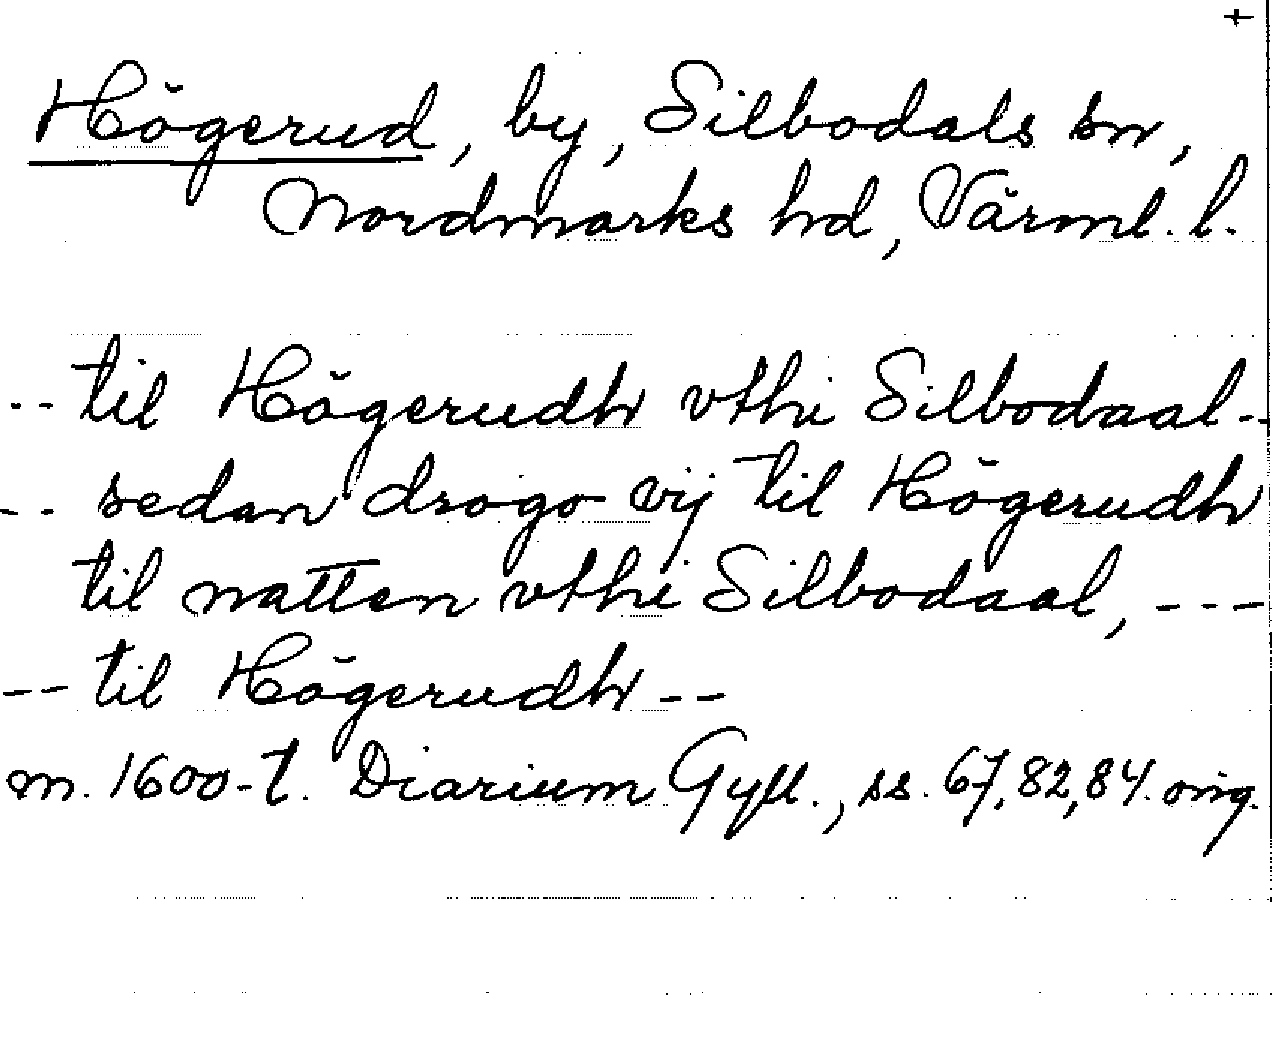 +
Högerud, by, Silbodals sn,
Nordmarks hd, Värml. l.
-- til Högerudh vthi Silbodaal --
-- sedan drogo vij til Högerudh
til natten vthi Silbodaal, ---
-- til Högerudh --
m. 1600-t. Diarium Gyll., ss. 67, 82, 84. orig.